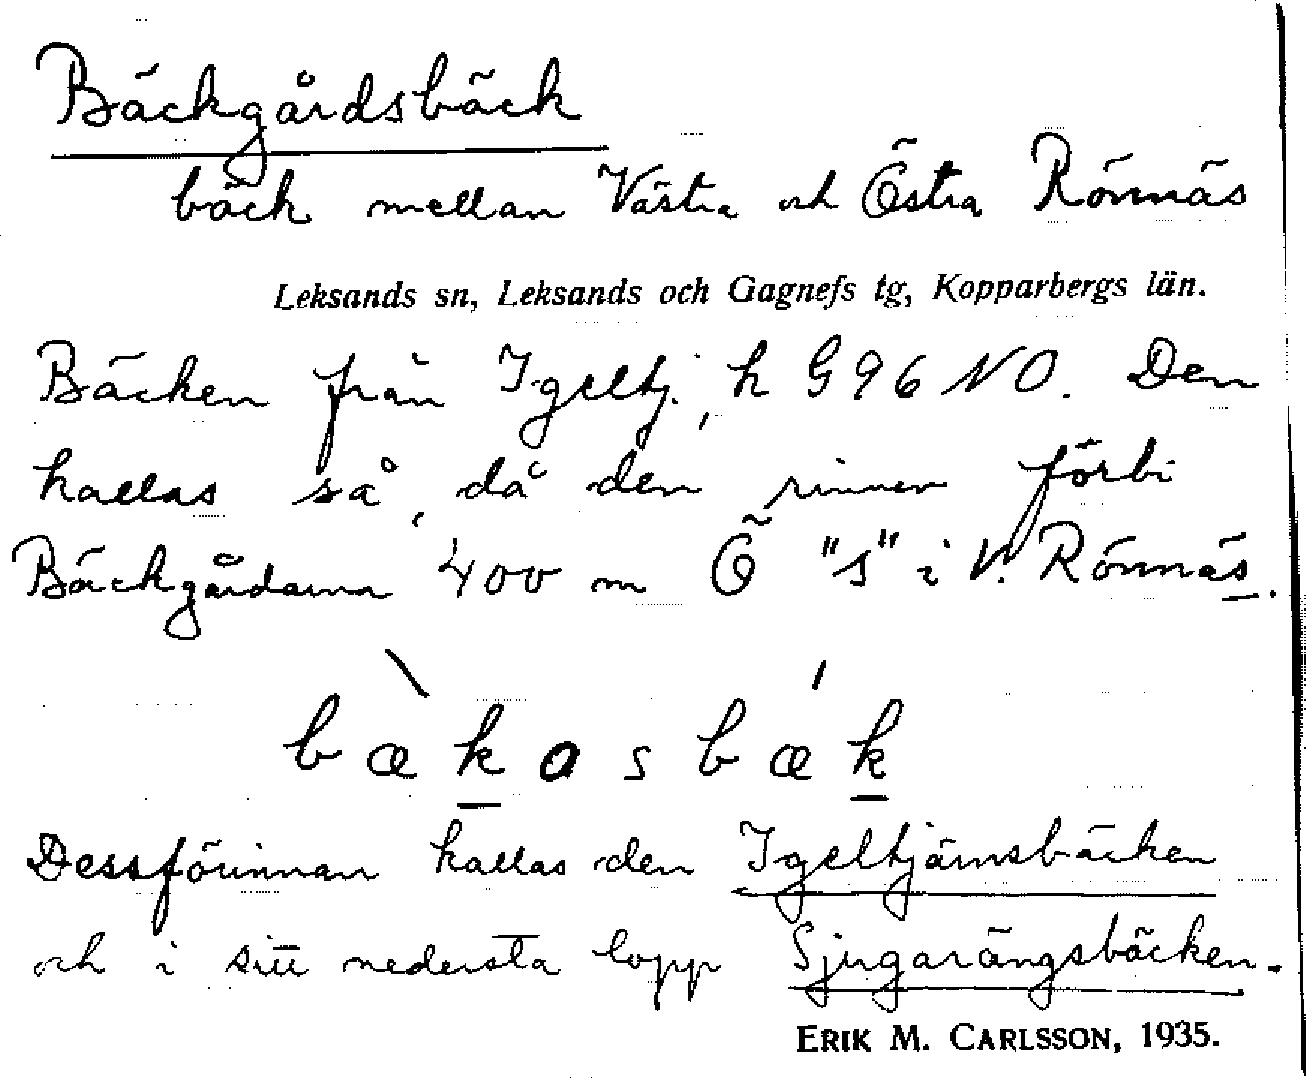 Bäckgårdsbäck
bäck mellan Västra och Östra Rönnäs
Leksands sn, Leksands och Gagnefs tg, Kopparbergs län.
Bäcken från Igeltj., h G96 NO. Den
kallas så, då den rinner förbi
Bäckgårdarna 400 m Ö "s" i V. Rönnäs.
bækosbæk
Dessförinnan kallas den Igeltjärnsbäcken
och i sitt nedersta lopp Sjugarängsbäcken.
ERIK M. CARLSSON, 1935.